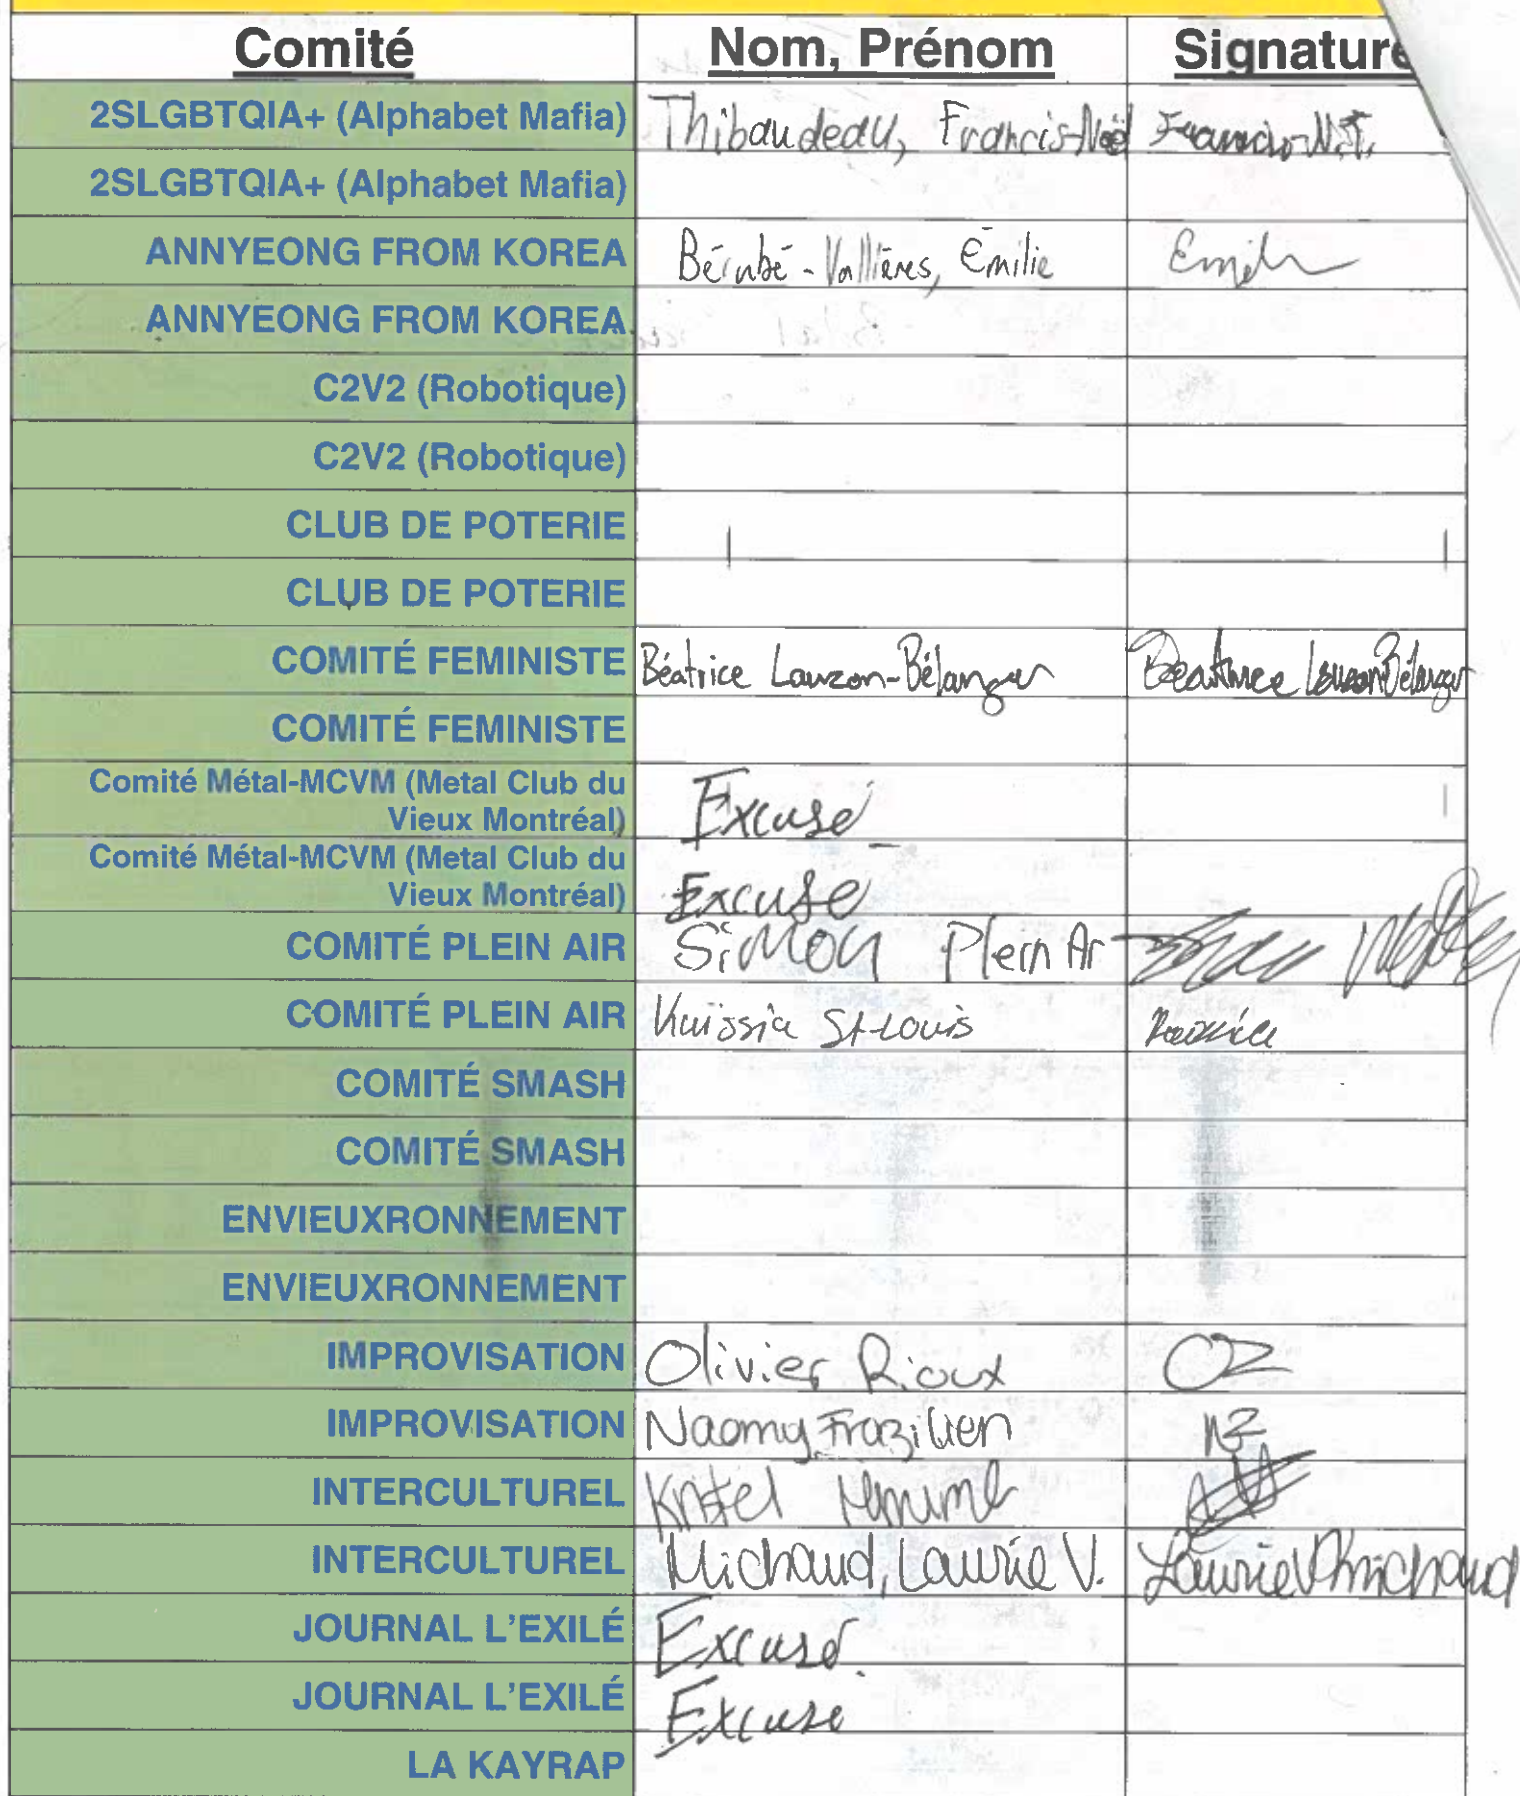 Comité Nom, Prénom Signature
2SLGBTQIA+ (Alphabet Mafia) Thibaudeau, Francis-Noël Francis-N.T.
2SLGBTQIA+ (Alphabet Mafia)
ANNYEONG FROM KOREA Bérubé-Vallières, Émilie Emili
ANNYEONG FROM KOREA
C2V2 (Robotique)
C2V2 (Robotique)
CLUB DE POTERIE
CLUB DE POTERIE
COMITÉ FEMINISTE Béatrice Lauzon-Bélanger Béatrice Lauzon Bélanger
COMITÉ FEMINISTE
Comité Métal-MCVM (Metal Club du
Vieux Montréal) Excusé
Comité Métal-MCVM (Metal Club du
Vieux Montréal) Excusé
COMITÉ PLEIN AIR Simon Plein Ar
COMITÉ PLEIN AIR St-Louis
COMITÉ SMASH
COMITÉ SMASH
ENVIEUXRONNEMENT
ENVIEUXRONNEMENT
IMPROVISATION Olivier Rioux OZ
IMPROVISATION Naomy Frazilien
INTERCULTUREL Kristel
INTERCULTUREL Michaud, Laurie V. Laurie V Michaud
JOURNAL L'EXILÉ Excusé
JOURNAL L'EXILÉ Excusé
LA KAYRAP